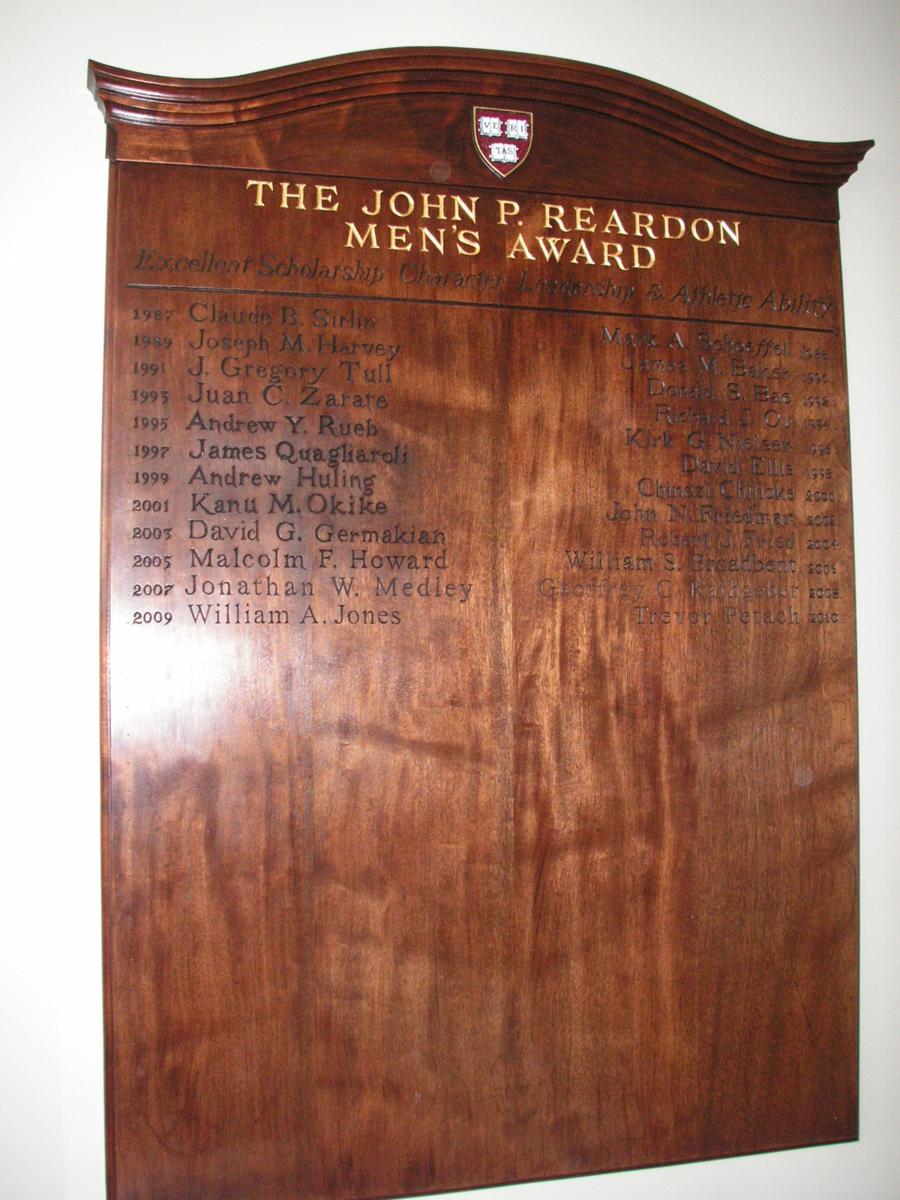 VE RI
TAS
THE JOHN P. REARDON
MEN'S AWARD
Excellent Scholarship Character Leadership & Athletic Ability
1987 Claude B. Sirlin
Mark A. Schoeffel 1988
1989 Joseph M. Harvey
James M. Baker 1990
1991 J. Gregory Tull
Donald S. Bae 1992
1993 Juan C. Zarate
Richard J. 1994
1995 Andrew Y. Rueb
Kirk G. Nielsen 1996
1997 James Quagliaroli
David Ellis 1998
1999 Andrew Huling
2000
2001 Kanu M. Okike
John N. Friedman 2002
2003 David G. Germakian
Robert J. Fried 2004
2005 Malcolm F. Howard
William S. Broadbent 2006
2007 Jonathan W. Medley
Geoffrey C. 2008
2009 William A. Jones
Trevor Petach 2010